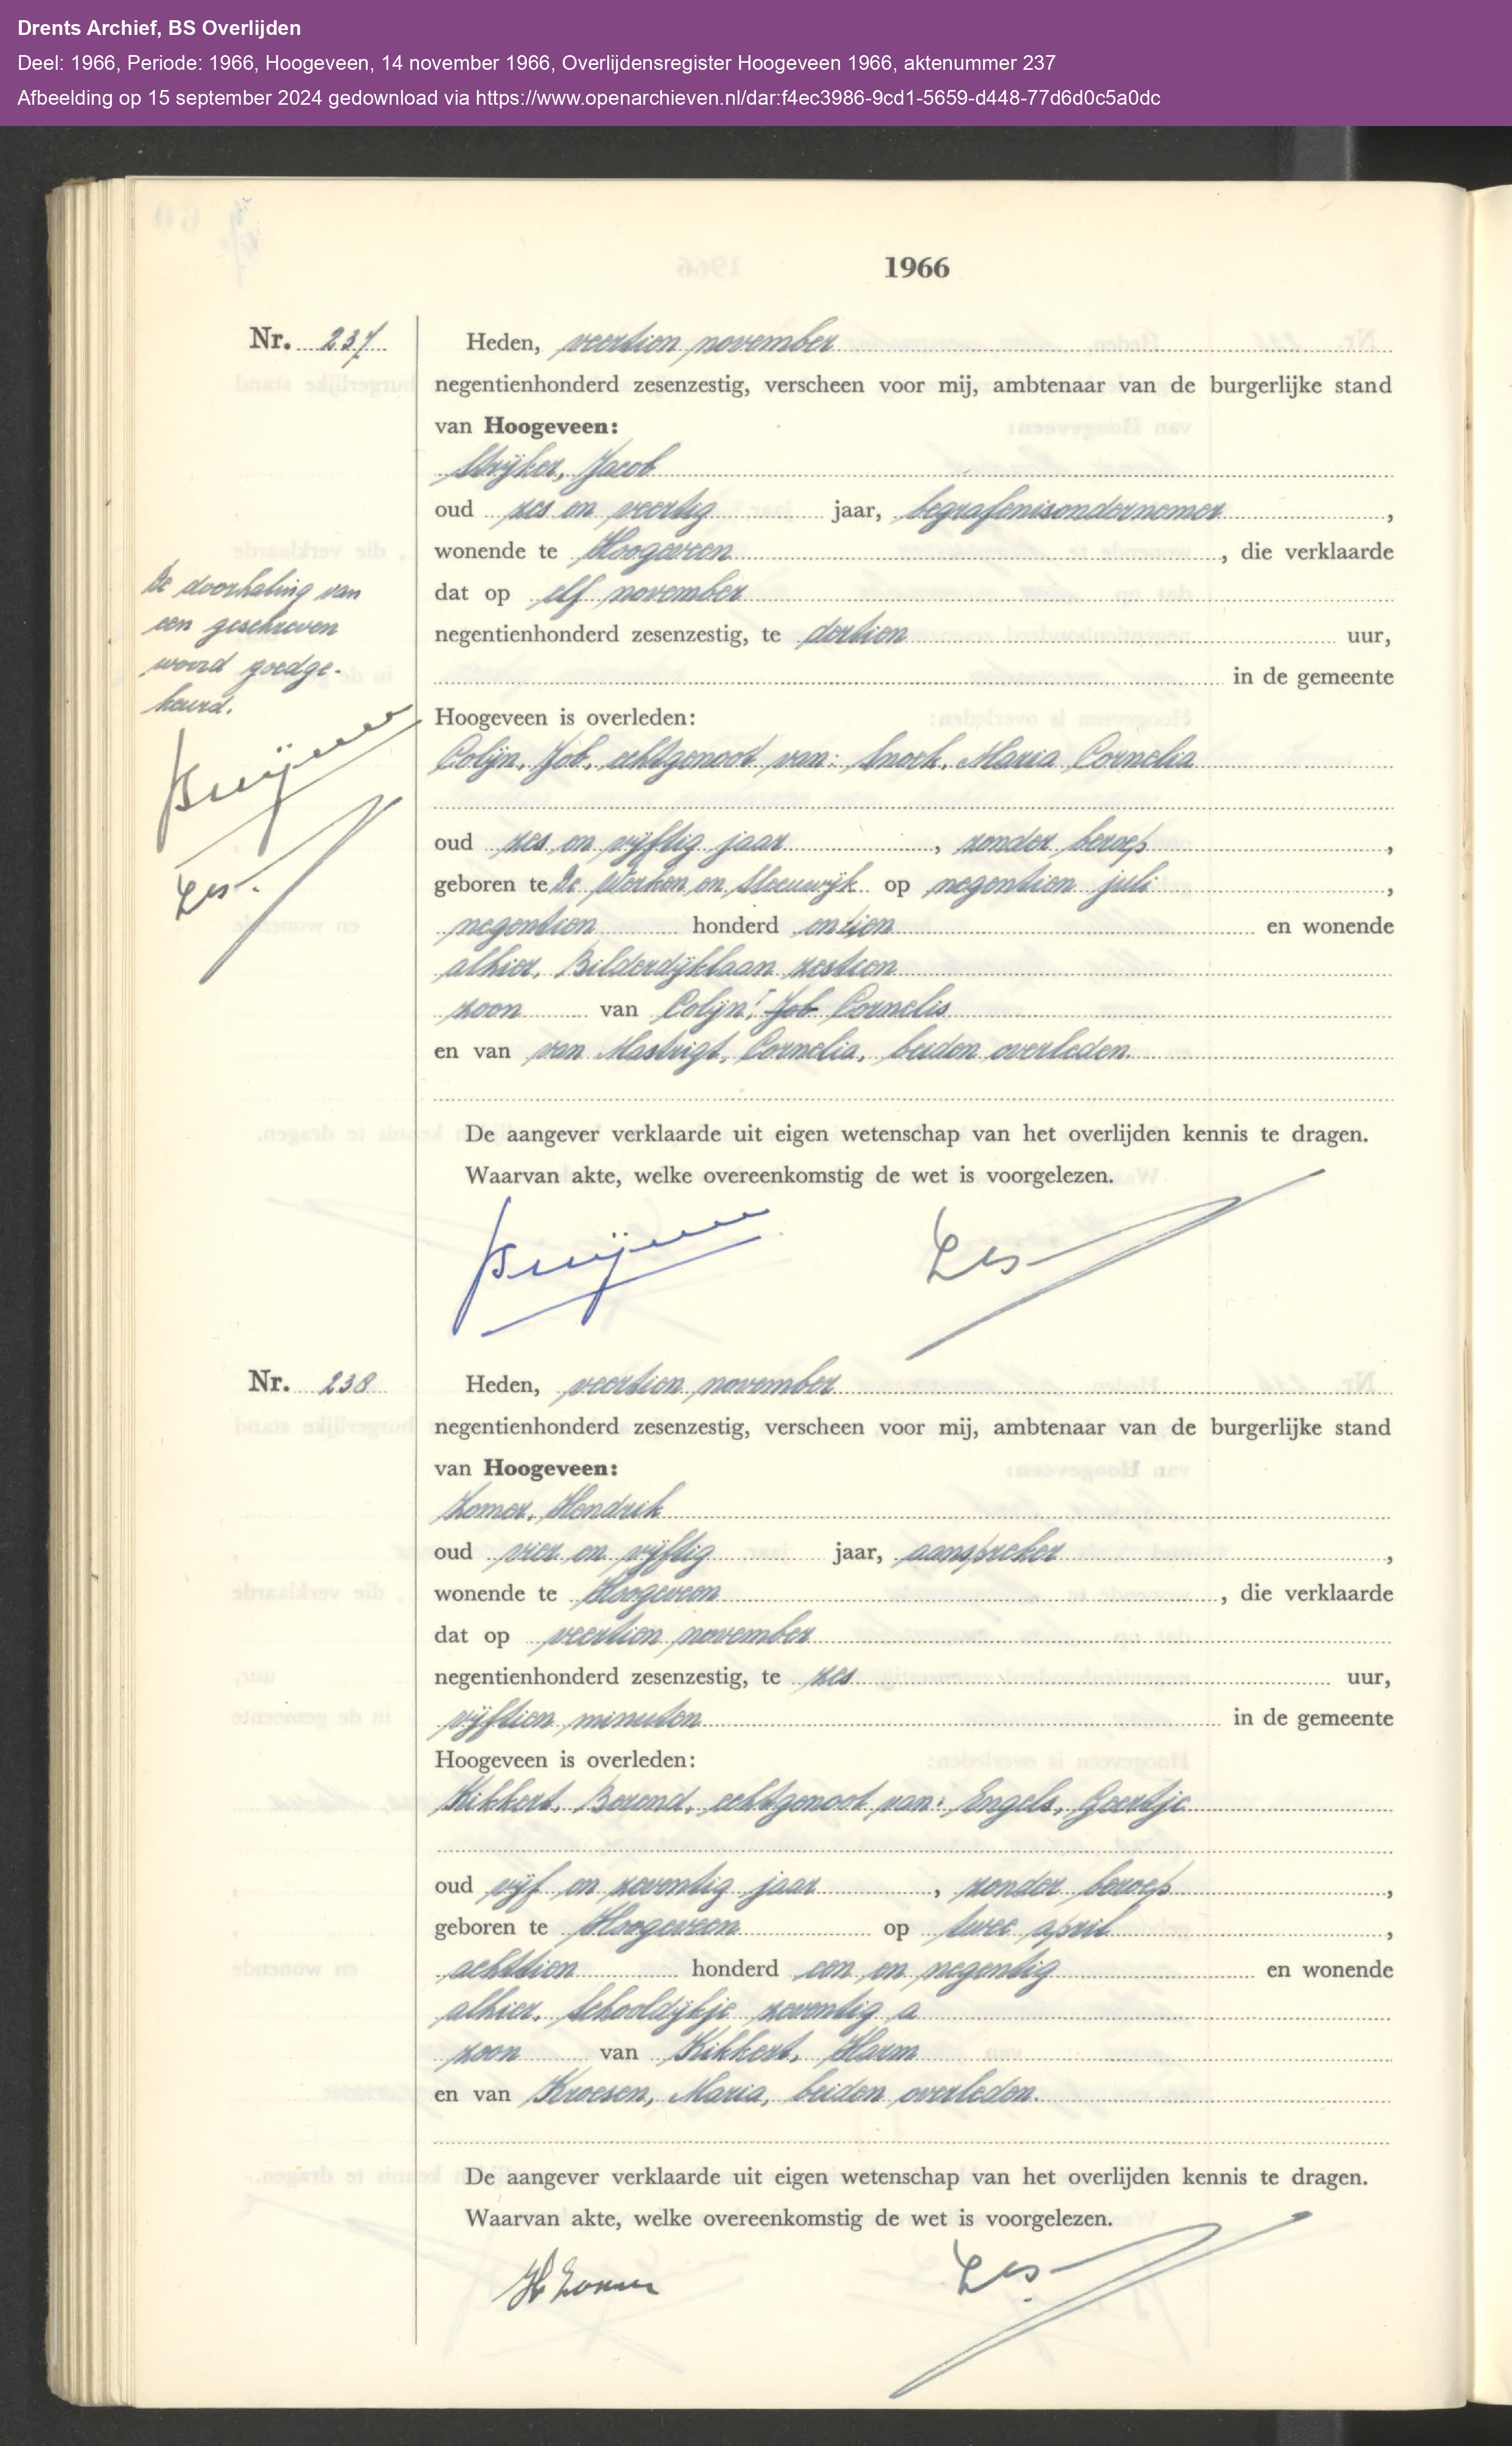 Drents Archief, BS Overlijden
Deel: 1966, Periode: 1966, Hoogeveen, 14 november 1966, Overlijdensregister Hoogeveen 1966, aktenummer 237
Afbeelding op 15 september 2024 gedownload via https://www.openarchieven.nl/dar:f4ec3986-9cd1-5659-d448-77d6d0c5a0dc
1966
Nr. 237
Heden, veertien november
negentienhonderd zesenzestig, verscheen voor mij, ambtenaar van de burgerlijke stand
van Hoogeveen:
Strijker, Jacob
oud zes en veertig jaar, begrafenisondernemer,
wonende te Hoogeveen, die verklaarde
dat op elf november
negentienhonderd zesenzestig, te dertien uur,
in de gemeente
Hoogeveen is overleden:
Colijn, Job, echtgenoot van: Snoek, Maria Cornelia
oud zes en vijftig jaar, zonder beroep,
geboren te De Werken en Sleeuwijk op negentien juli,
negentien honderd en tien en wonende
alhier, Bilderdijklaan zestien
zoon van Colijn, Job Cornelis
en van van Mastrigt, Cornelia, beiden overleden.
De aangever verklaarde uit eigen wetenschap van het overlijden kennis te dragen.
Waarvan akte, welke overeenkomstig de wet is voorgelezen.
De doorhaling van
een geschreven
woord goedge-
keurd.
Nr. 238
Heden, veertien november
negentienhonderd zesenzestig, verscheen voor mij, ambtenaar van de burgerlijke stand
van Hoogeveen:
Zomer, Hendrik
oud vier en vijftig jaar, aanspreker,
wonende te Hoogeveen, die verklaarde
dat op veertien november
negentienhonderd zesenzestig, te zes uur,
vijftien minuten in de gemeente
Hoogeveen is overleden:
Kikkert, Berend, echtgenoot van: Engels, Geertje
oud vijf en zeventig jaar, zonder beroep,
geboren te Hoogeveen op twee april,
achttien honderd een en negentig en wonende
alhier, Schooldijkje zeventig a
zoon van Kikkert, Harm
en van Kroesen, Maria, beiden overleden.
De aangever verklaarde uit eigen wetenschap van het overlijden kennis te dragen.
Waarvan akte, welke overeenkomstig de wet is voorgelezen.
H Zomer